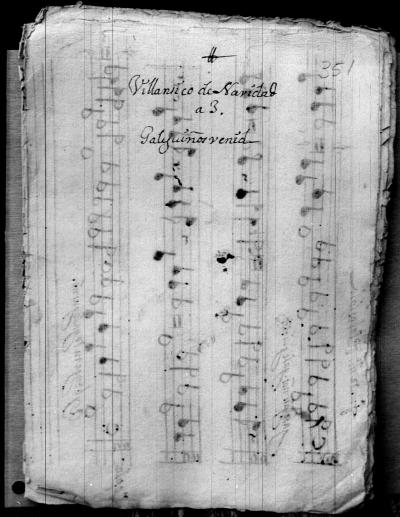 351
Villansico de Navidad
a 3.
Galeguiños venid